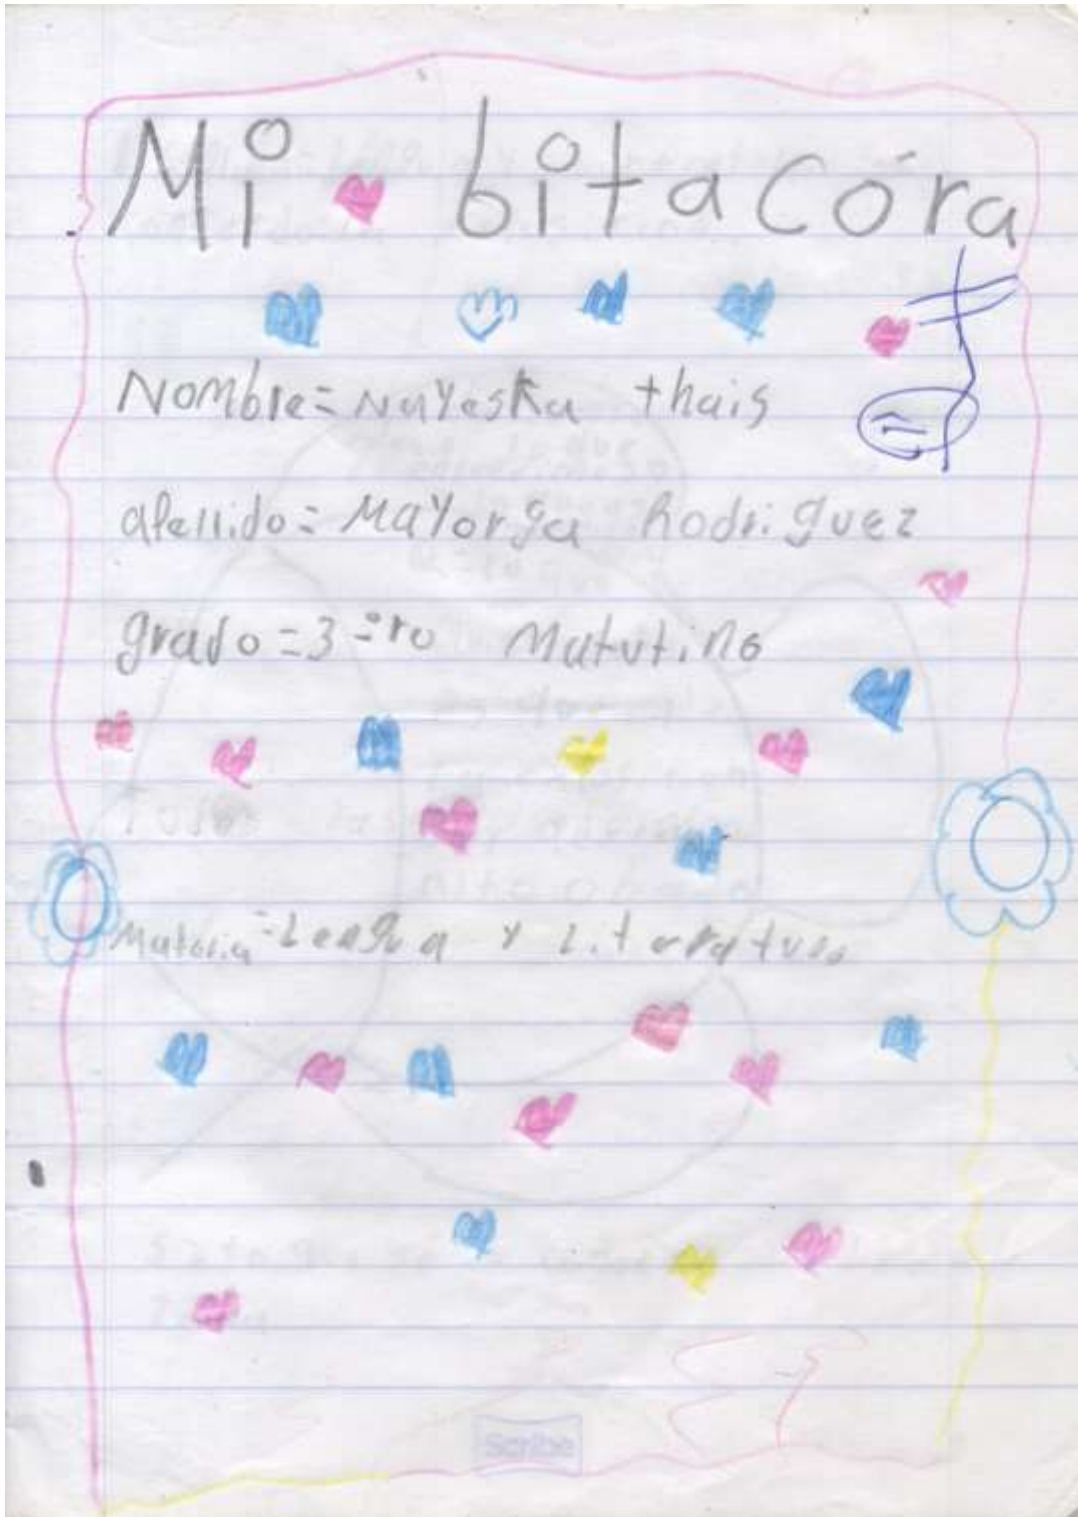 Mi bitacóra
Nombre= Nayeska thais
apellido= Mayorga Rodriguez
grado = 3 = ro Matutino
Materia = Lengua y Literatura
Scribe